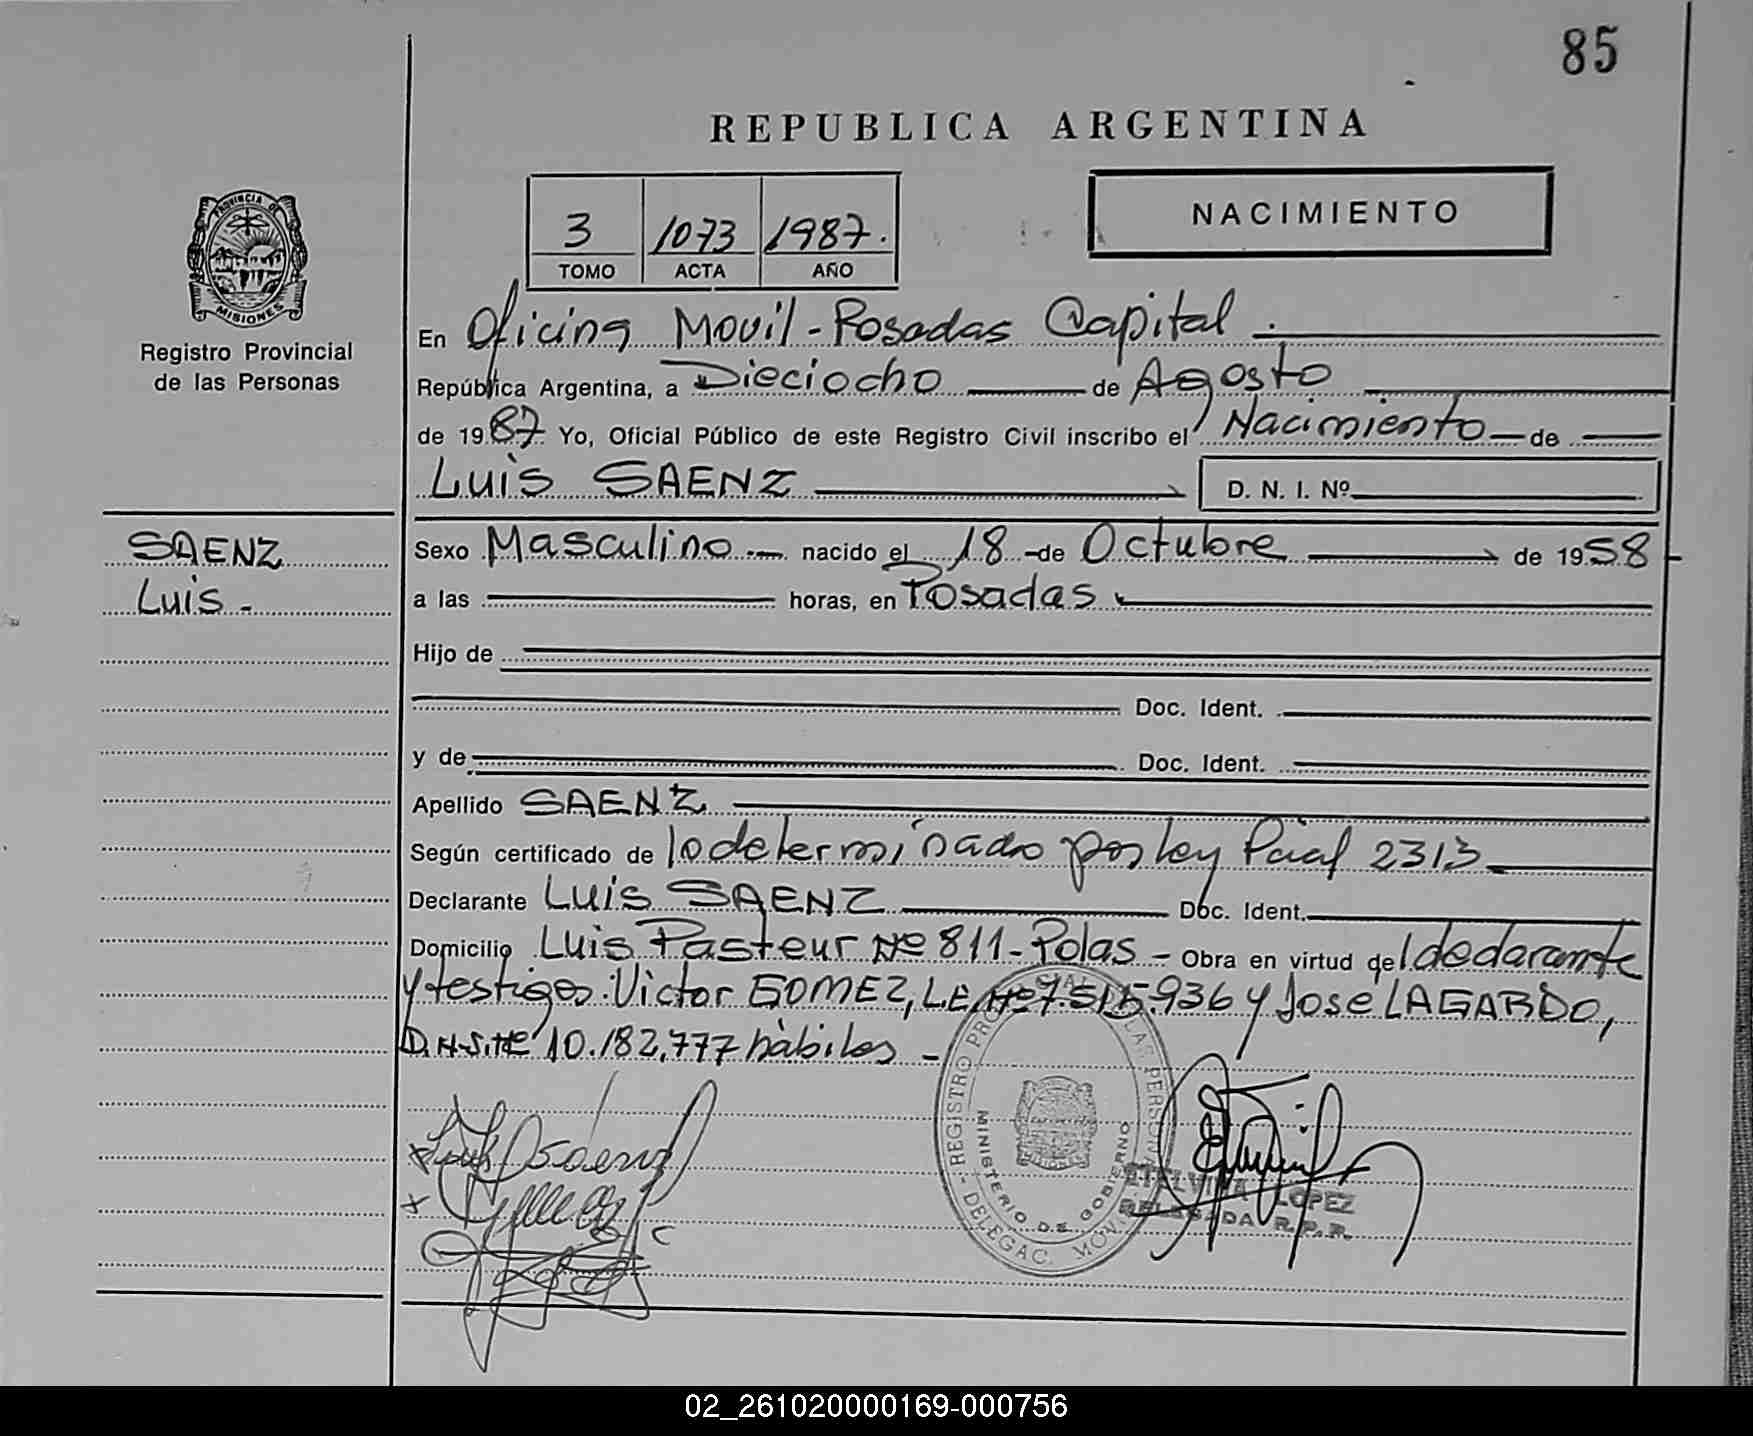 85
REPUBLICA ARGENTINA
PROVINCIA DE
MISIONES
Registro Provincial
de las Personas
3 1073 1987.
TOMO ACTA AÑO
NACIMIENTO
En Oficina Movil - Posadas Capital.
República Argentina, a Dieciocho de Agosto
de 1987 Yo, Oficial Público de este Registro Civil inscribo el Nacimiento de
Luis SAENZ D. N. I. Nº
SAENZ
Luis -
Sexo Masculino.- nacido el 18 de Octubre de 1958
a las horas, en Posadas
Hijo de
Doc. Ident.
y de Doc. Ident.
Apellido SAENZ
Según certificado de lo determinado por Ley Pcial 2313
Declarante Luis SAENZ Doc. Ident.
Domicilio Luis Pasteur Nº 811 - Pdas - Obra en virtud del declarante
y testigos: Victor GOMEZ, L.E. Nº 7.515.936 y José LAGARDO,
D.N.I. Nº 10.182.777 hàbiles -
REGISTRO DE LAS PERSONAS
MINISTERIO DE GOBIERNO
DELEGAC. MOVIL
ETELVINA LOPEZ
DELEGADA R.P.P.
02_261020000169-000756